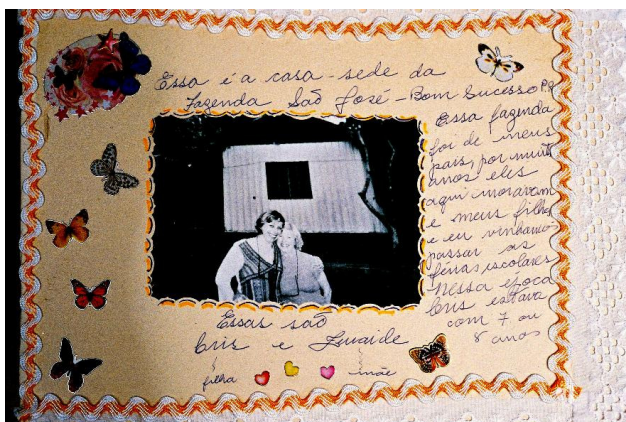 Essa é a casa-sede da
Fazenda São José - Bom Sucesso PR
Essa fazenda
foi de meus
pais, por muitos
anos eles
aqui moravam
e meus filhos
e eu vinhamos
passar as
férias escolares
Nessa época
Cris estava
com 7 ou
8 anos
Essas são
Cris e
filha
mãe